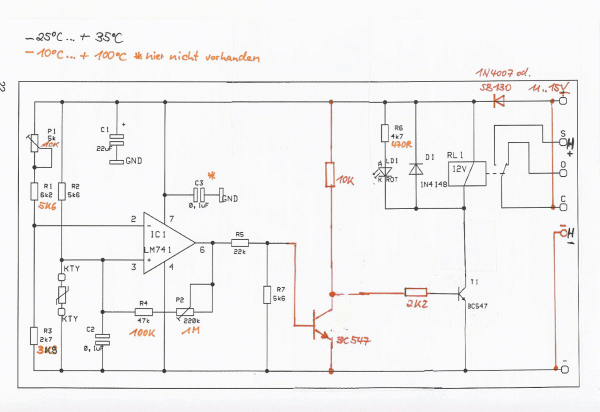 -25°C... + 35°C
-10°C... + 100°C * hier nicht vorhanden
1N4007 od.
SB130
11..15V
+
P1
5k
10K
C1
22uF
+
GND
R6
4k7
470R
LD1
ROT
D1
1N4148
RL1
12V
S
H
+
Ö
C
H
-
R1
6k2
5K6
R2
5k6
C3
*
0,1uF
GND
10K
2
-
7
IC1
LM741
6
3
+
4
R5
22k
KTY
KTY
R7
5k6
2K2
T1
BC547
R4
47k
100K
P2
220k
1M
R3
2k7
C2
0,1uF
BC547
-